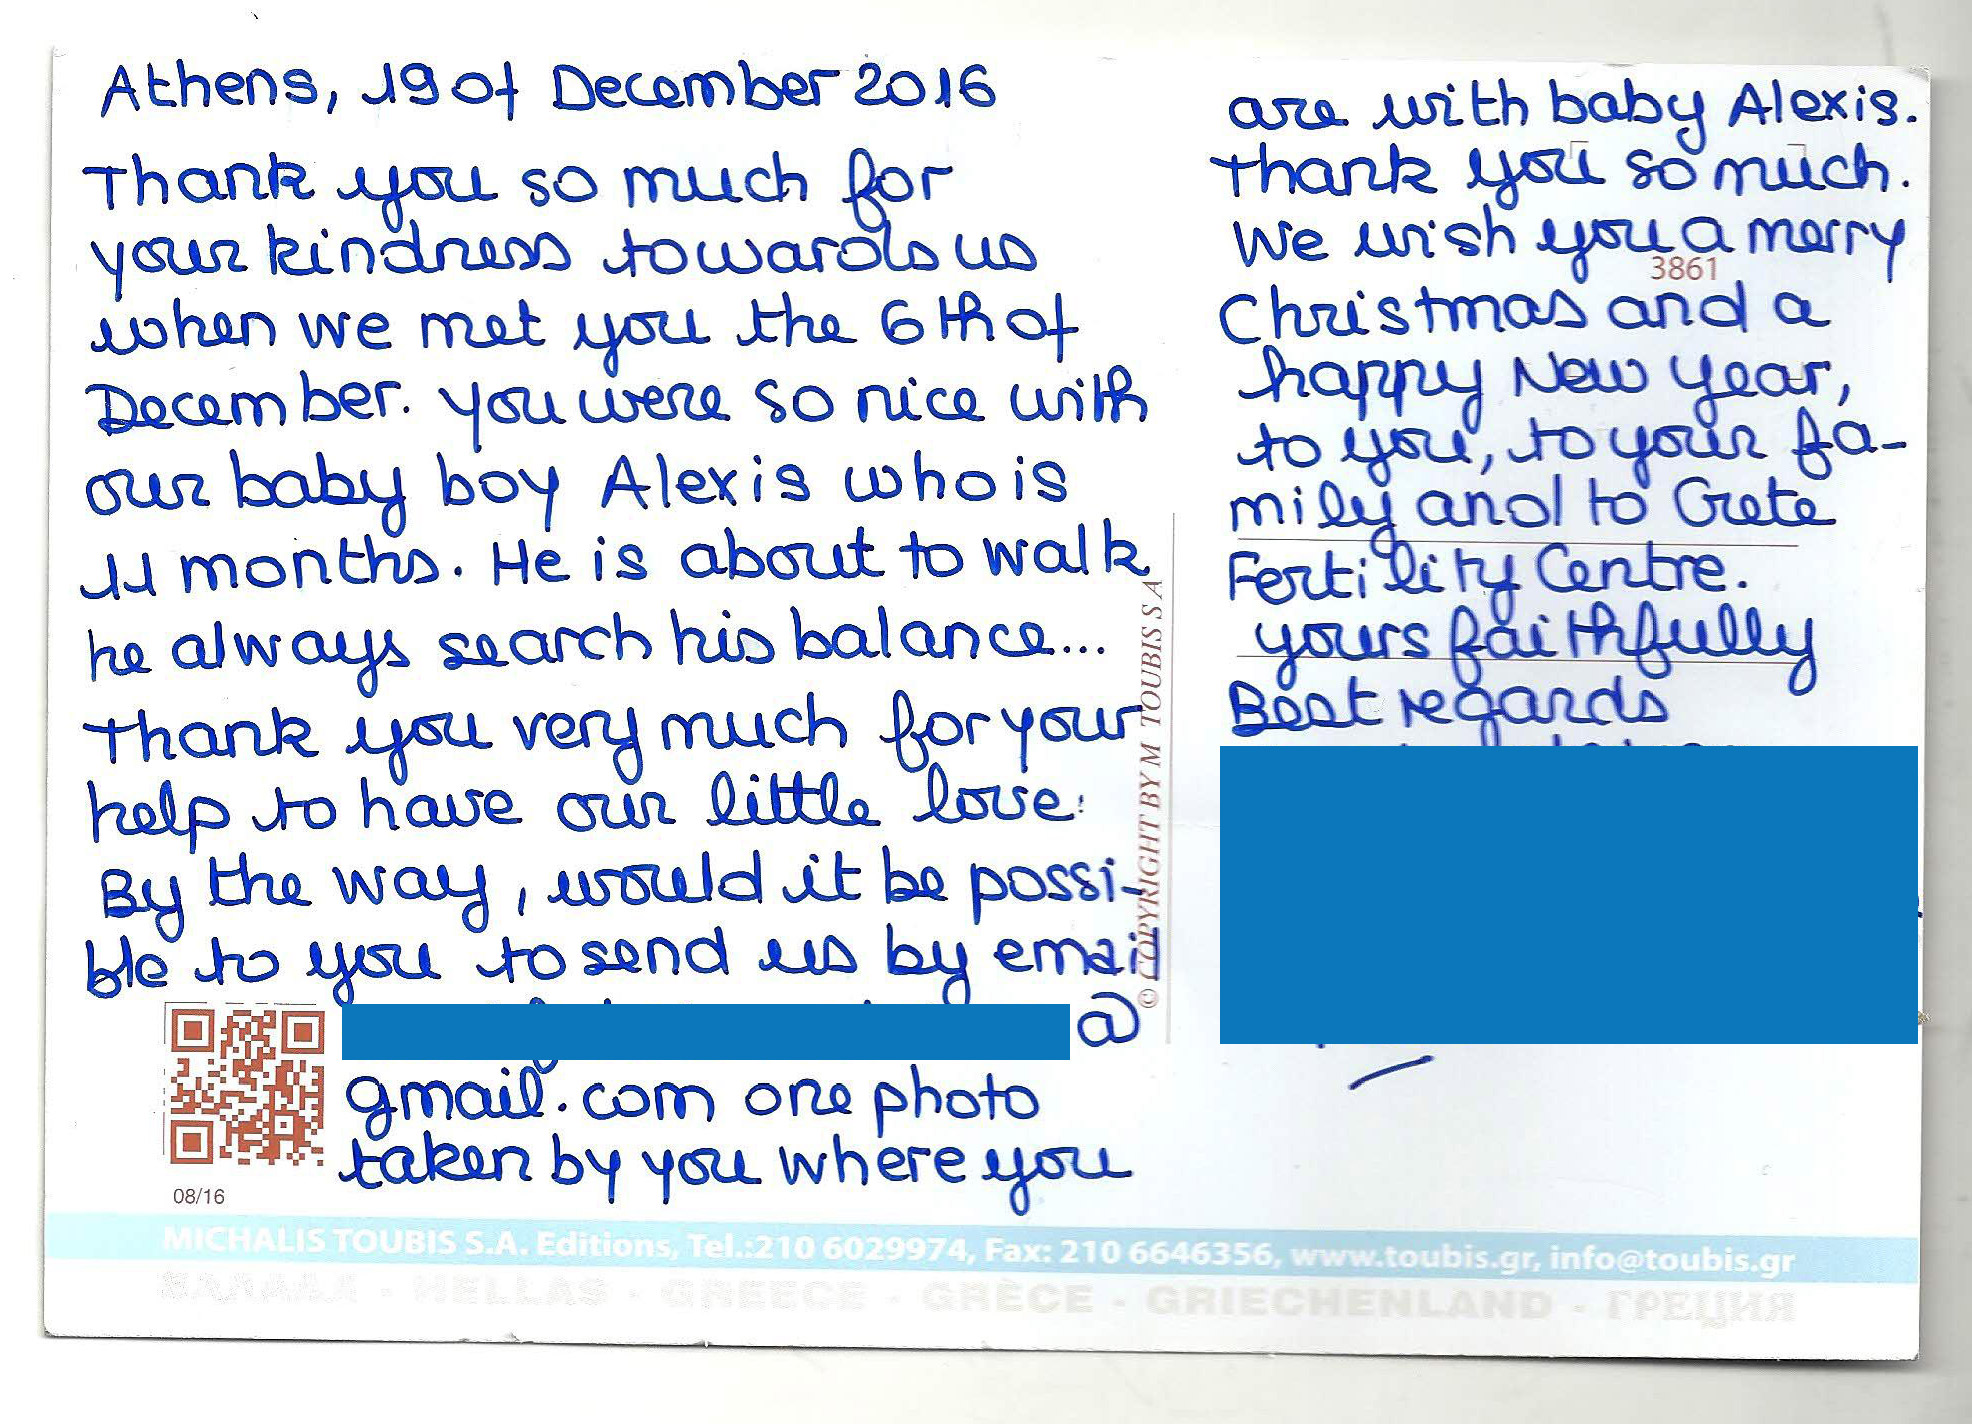 Athens, 19 of December 2016
Thank you so much for
your kindness towards us
when we met you the 6th of
December. You were so nice with
our baby boy Alexis who is
11 months. He is about to walk
he always search his balance...
Thank you very much for your
help to have our little love.
By the way, would it be possi-
ble to you to send us by email
@
gmail.com one photo
taken by you where you
are with baby Alexis.
Thank you so much.
We wish you a merry
Christmas and a
happy New Year,
to you, to your fa-
mily and to Crete
Fertility Centre.
yours faithfully
Best regards
3861
© COPYRIGHT BY M TOUBIS S A
08/16
MICHALIS TOUBIS S.A. Editions, Tel.:210 6029974, Fax: 210 6646356, www.toubis.gr, info@toubis.gr
ΕΛΛΑΔΑ - HELLAS - GREECE - GRÈCE - GRIECHENLAND - ГРЕЦИЯ